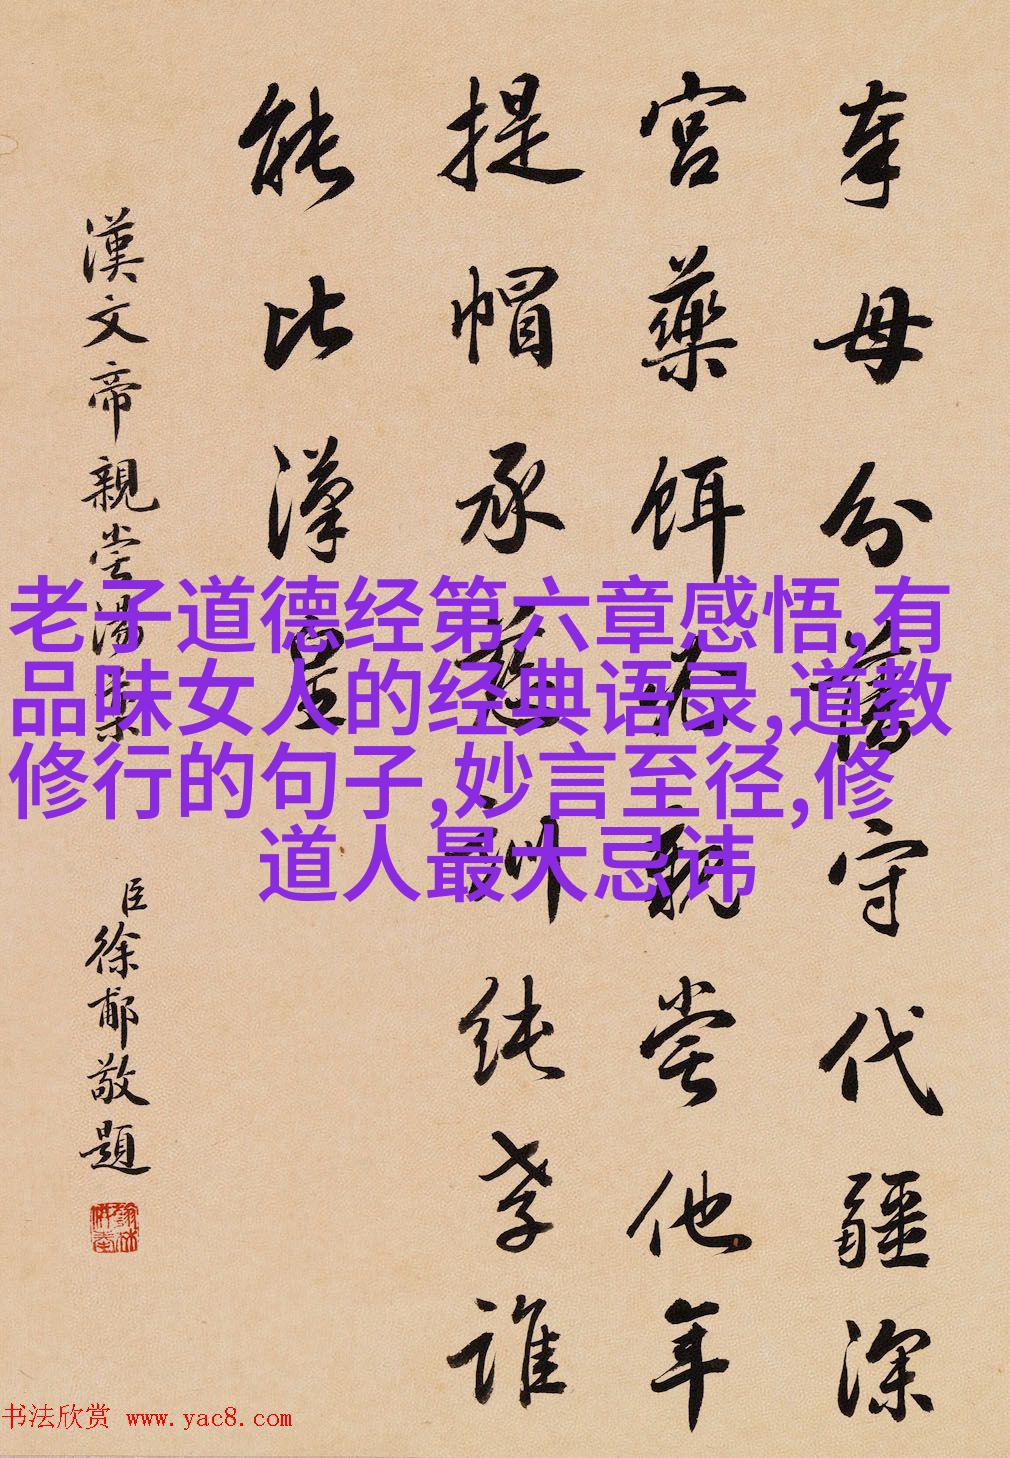 奉母分藩守代疆深
宮藥餌必親嘗他年
提帽承慈訓純孝誰
能比漢皇
漢文帝親嘗湯藥
臣徐郙敬題
老子道德经第六章感悟,有
品味女人的经典语录,道教
修行的句子,妙言至径,修
道人最大忌讳
书法欣赏 www.yac8.com